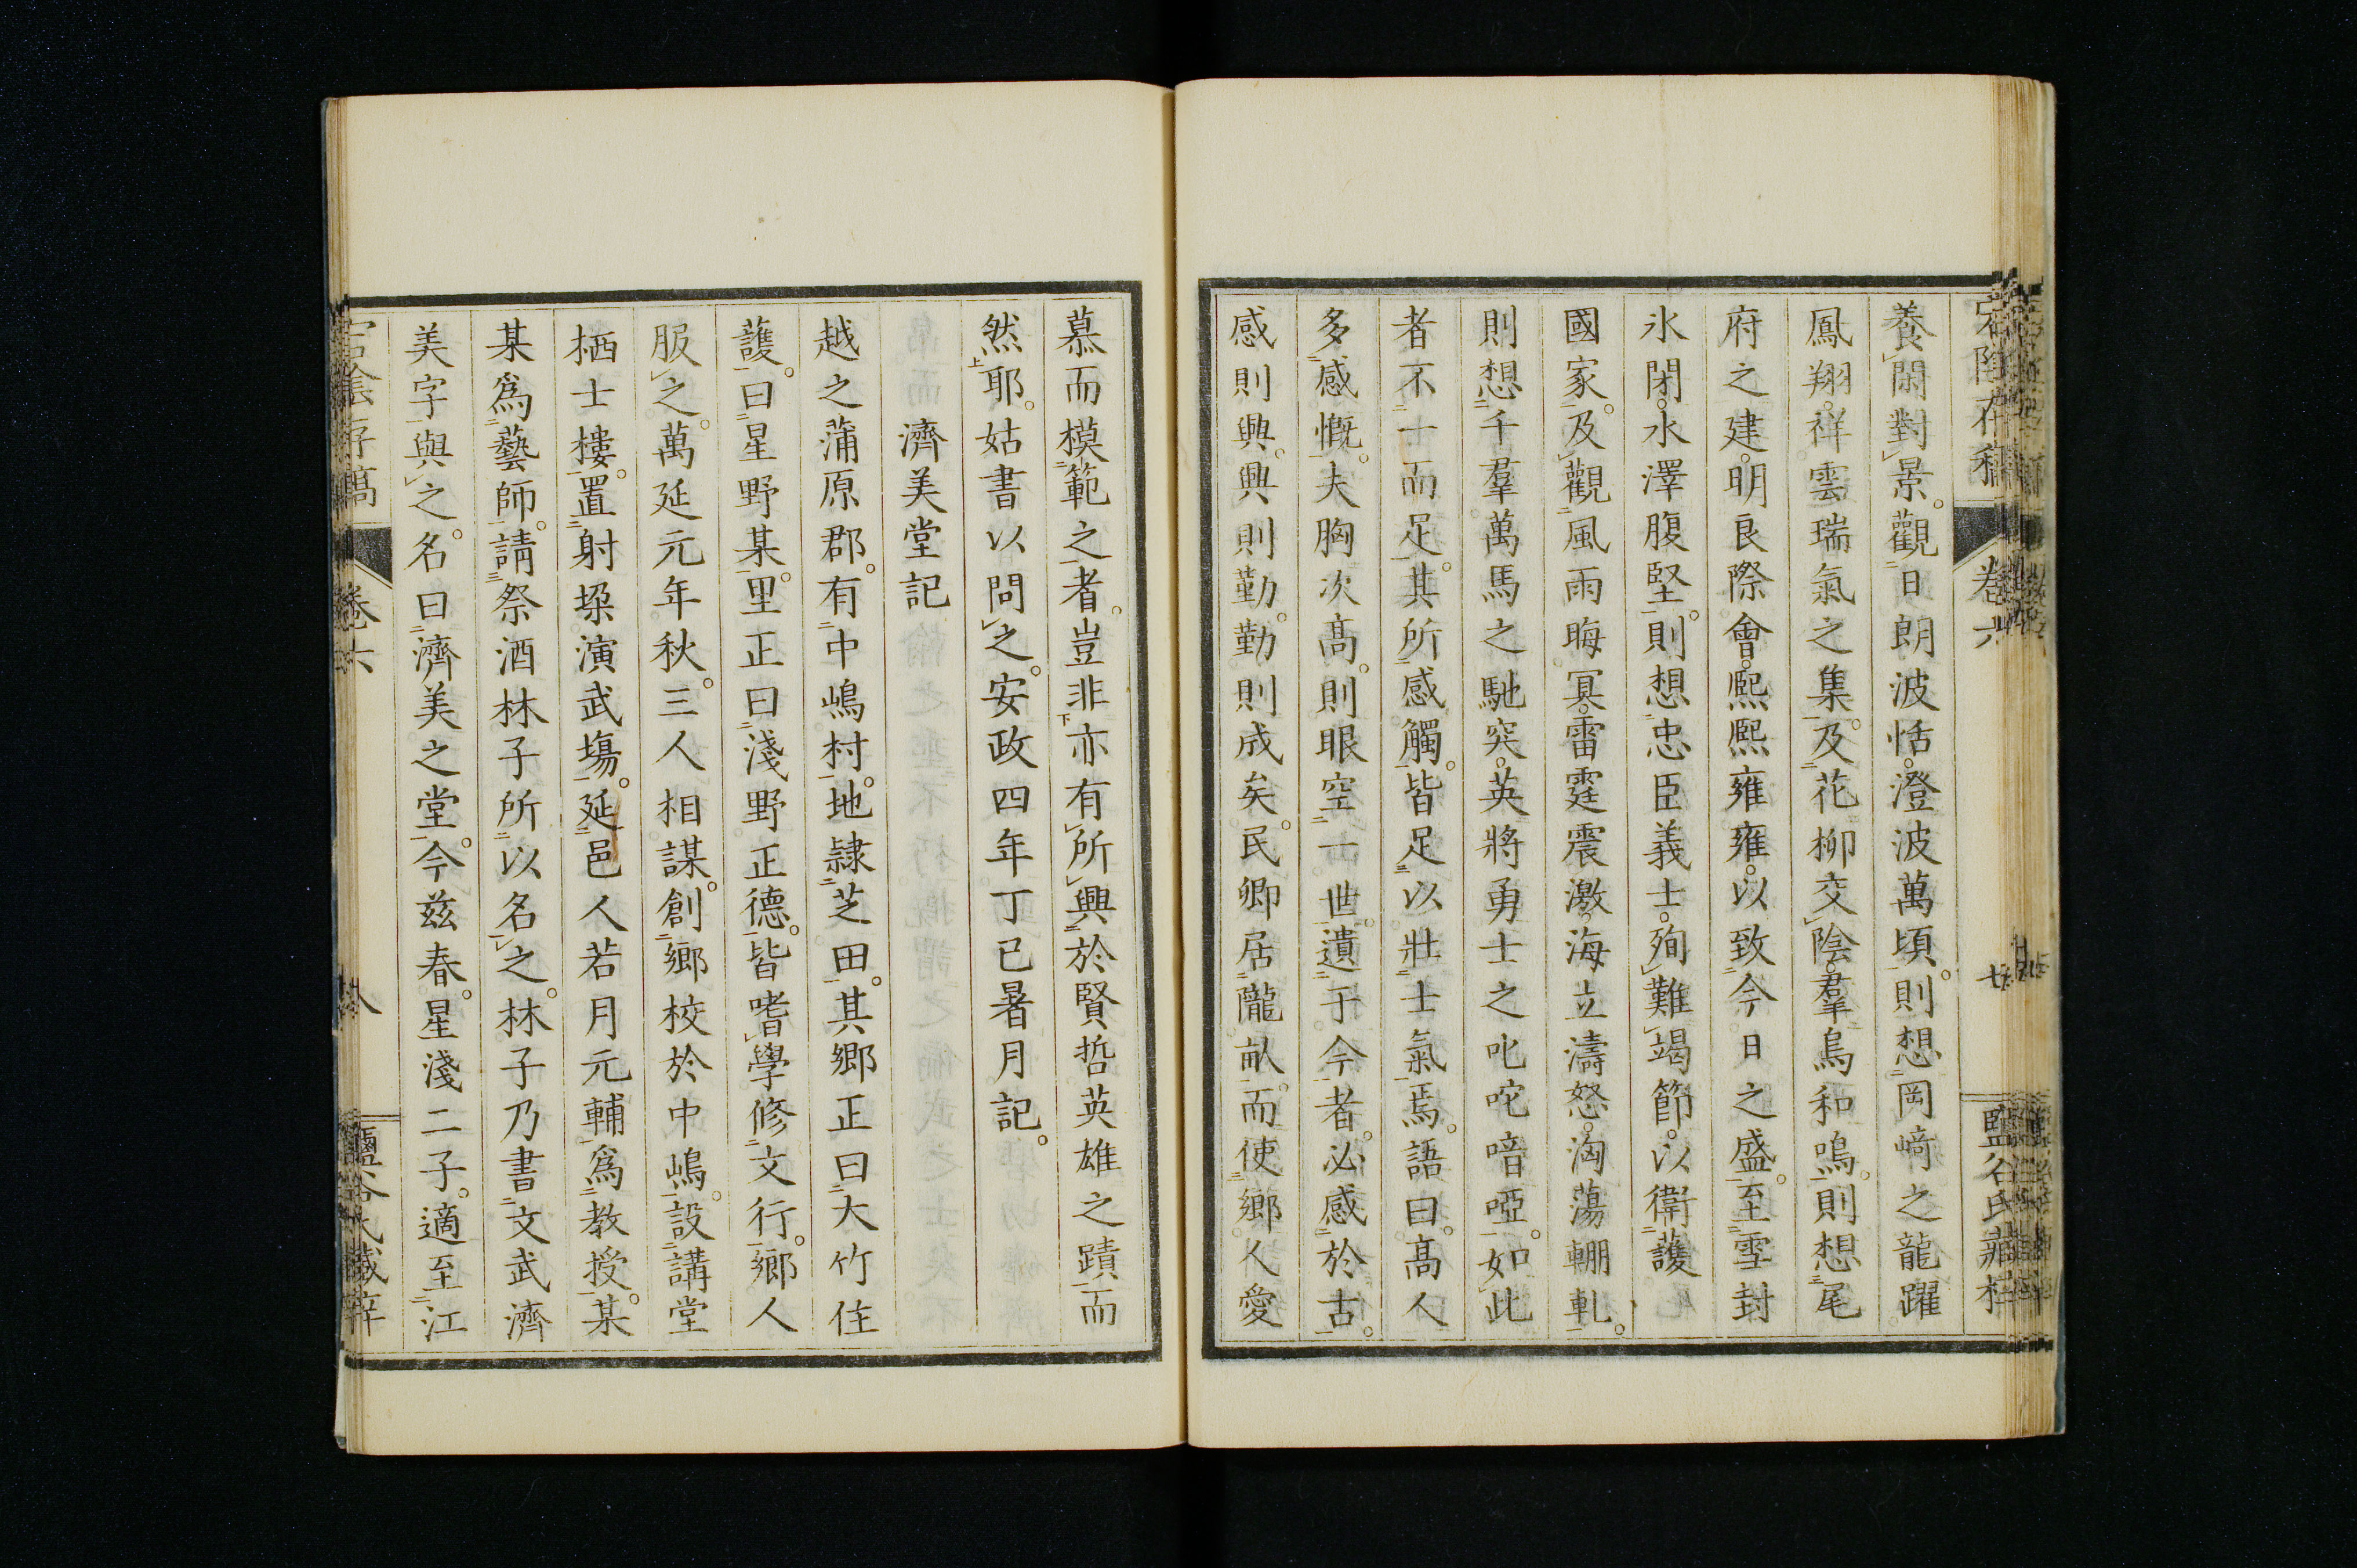 養閑對景。觀日朗波恬。澄波萬頃。則想岡﨑之龍躍
鳳翔。祥雲瑞氣之集。及花柳交陰。羣鳥和鳴。則想尾
府之建。明良際會。熙熙雍雍。以致今日之盛。至雪封
氷閉。水澤腹堅。則想忠臣義士。殉難竭節。以衛護
國家。及觀風雨晦冥。雷霆震激。海立濤怒。洶蕩輣軋。
則想千羣萬馬之馳突。英將勇士之叱咤喑啞。如此
者不一而足。其所感觸。皆足以壯士氣焉。語曰。高人
多感慨。夫胸次高。則眼空一世。遺于今者。必感於古。
感則興。興則勤。勤則成矣。民卿居隴畝。而使鄉人愛
慕而模範之者。豈非亦有所興於賢哲英雄之蹟而
然耶。姑書以問之。安政四年丁巳暑月記。
濟美堂記
越之蒲原郡。有中嶋村。地隷芝田。其鄉正曰大竹住
護。曰星野某。里正曰淺野正德。皆嗜學修文行。鄉人
服之。萬延元年秋。三人相謀。創鄉校於中嶋。設講堂
栖士樓。置射垜演武塲。延邑人若月元輔爲教授。某
某爲藝師。請祭酒林子所以名之。林子乃書文武濟
美字與之。名曰濟美之堂。今玆春。星淺二子。適至江
卷六
卷六